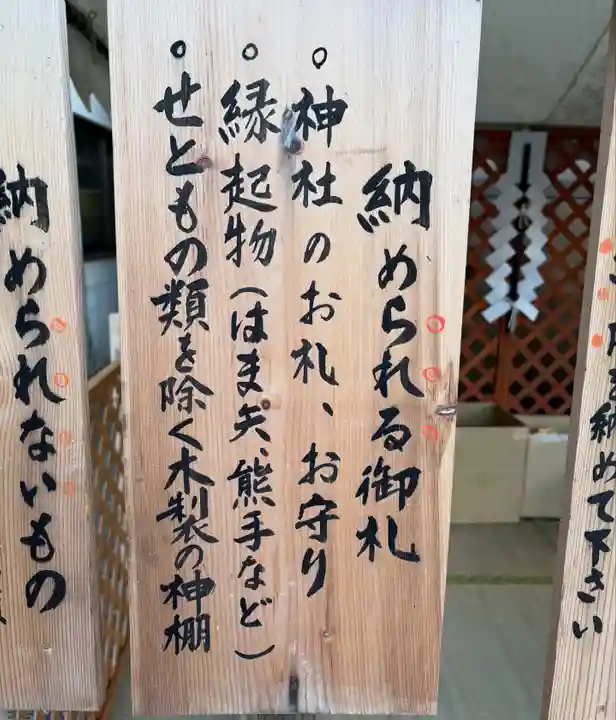 納めて下さい
納められる御札
○神社のお札、お守り
○縁起物(はま矢、熊手など)
○せともの類を除く木製の神棚
納められないもの